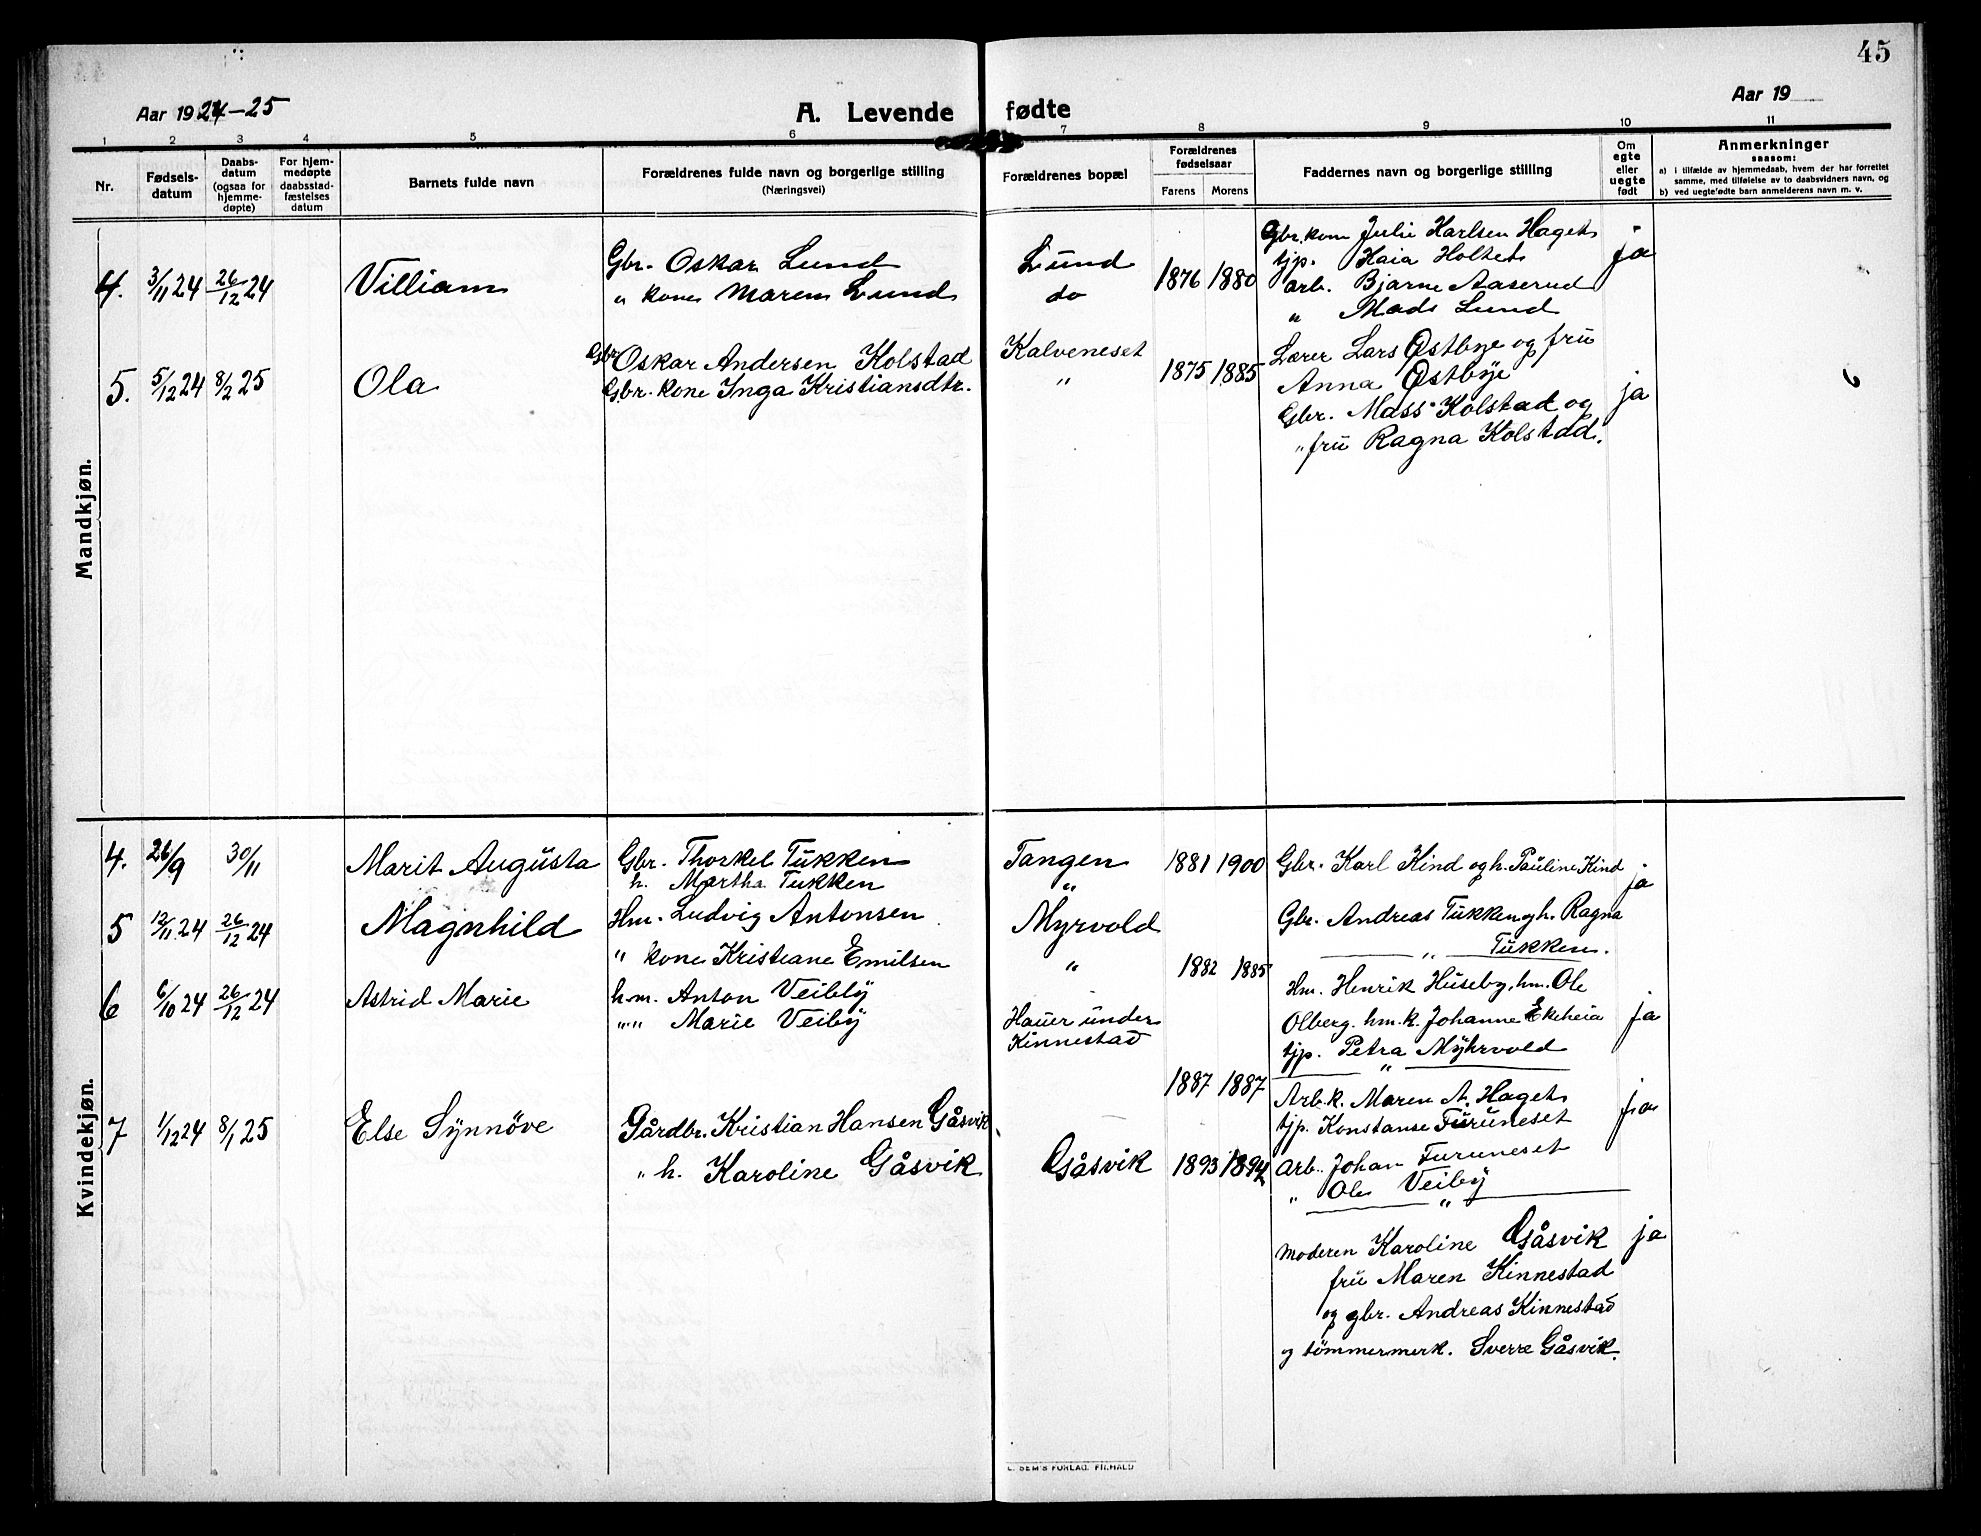 45
Aar 1924-25
A. Levende fødte
Aar 19
1 2 3 4 5 6 7 8 9 10 11
Nr.
Fødsels-
datum
Daabs-
datum
(ogsaa for
hjemme-
døpte)
For hjem-
medøpte
daabsstad-
fæstelses
datum
Barnets fulde navn
Forældrenes fulde navn og borgerlige stilling
(Næringsvei)
Forældrenes bopæl
Forældrenes
fødselsaar
Farens Morens
Faddernes navn og borgerlige stilling
Om
egte
eller
uegte
født
Anmerkninger
saasom:
a) i tilfælde av hjemmedaab, hvem der har forrettet
samme, med tilføielse av to daabsvidners navn, og
b) ved uegtefødte barn anmelderens navn m. v.
Mandkjøn.
4. 3/11 24 26/12 24 Villiam
Gbr. Oskar Lund
" kone Maren Lund
Lund
do
1876 1880
Gbr. kone Julie Karlsen Haget
tjp. Kaia Holtet
arb. Bjarne Aaserud
" Mads Lund
ja
5. 5/12 24 8/2 25 Ola
Gbr Oskar Andersen Kolstad
Gbr. kone Inga Kristiansdtr.
Kalveneset
"
1875 1885
Lærer Lars Østbye og fru
Anna Østbye
Gbr. Mass Kolstad og
" fru Ragna Kolstad.
ja
6
Kvindekjøn.
4. 26/9 30/11 Marit Augusta
Gbr. Thorkel Tukken
h. Martha Tukken
Tangen
"
1881 1900
Gbr. Karl Kind og h. Pauline Kind
ja
Gbr. Andreas Tukken og h. Ragna
" Tukken.
5 12/11 24 26/12 24 Magnhild
Hm. Ludvig Antonsen
" kone Kristiane Emilsen
Myrvold
"
1882 1885
Hm. Henrik Huseby, hm. Ole
Olberg. hm. k. Johanne Ekeheia
tjp. Petra Myhrvold
"
ja
6 6/10 24 26/12 24 Astrid Marie
hm. Anton Veibÿ
" " Marie Veiby
Hauer under
Kinnestad
1887 1887
Arb. k. Maren A. Haget
tjp. Konstanse Furuneset
Arb. Johan Furuneset
" Ole Veiby
"
ja
7 1/12 24 8/1 25 Else Synnöve
Gårdbr. Kristian Hansen Gåsvik
" h. Karoline Gåsvik
Gåsvik
1893 1894
Moderen Karoline Gåsvik
fru Maren Kinnestad
og gbr. Andreas Kinnestad
og tömmermerk. Sverre Gåsvik.
ja
E. SEM'S FORLAG. FR.HALD